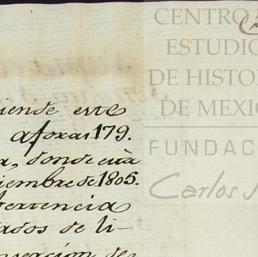 CENTRO
ESTUDIO
DE HISTO
DE MEXI
FUNDAC
Carlos
iende este
afoxas 179.
a, donde cita
iembre de 1805.
vertencia
ados de li-